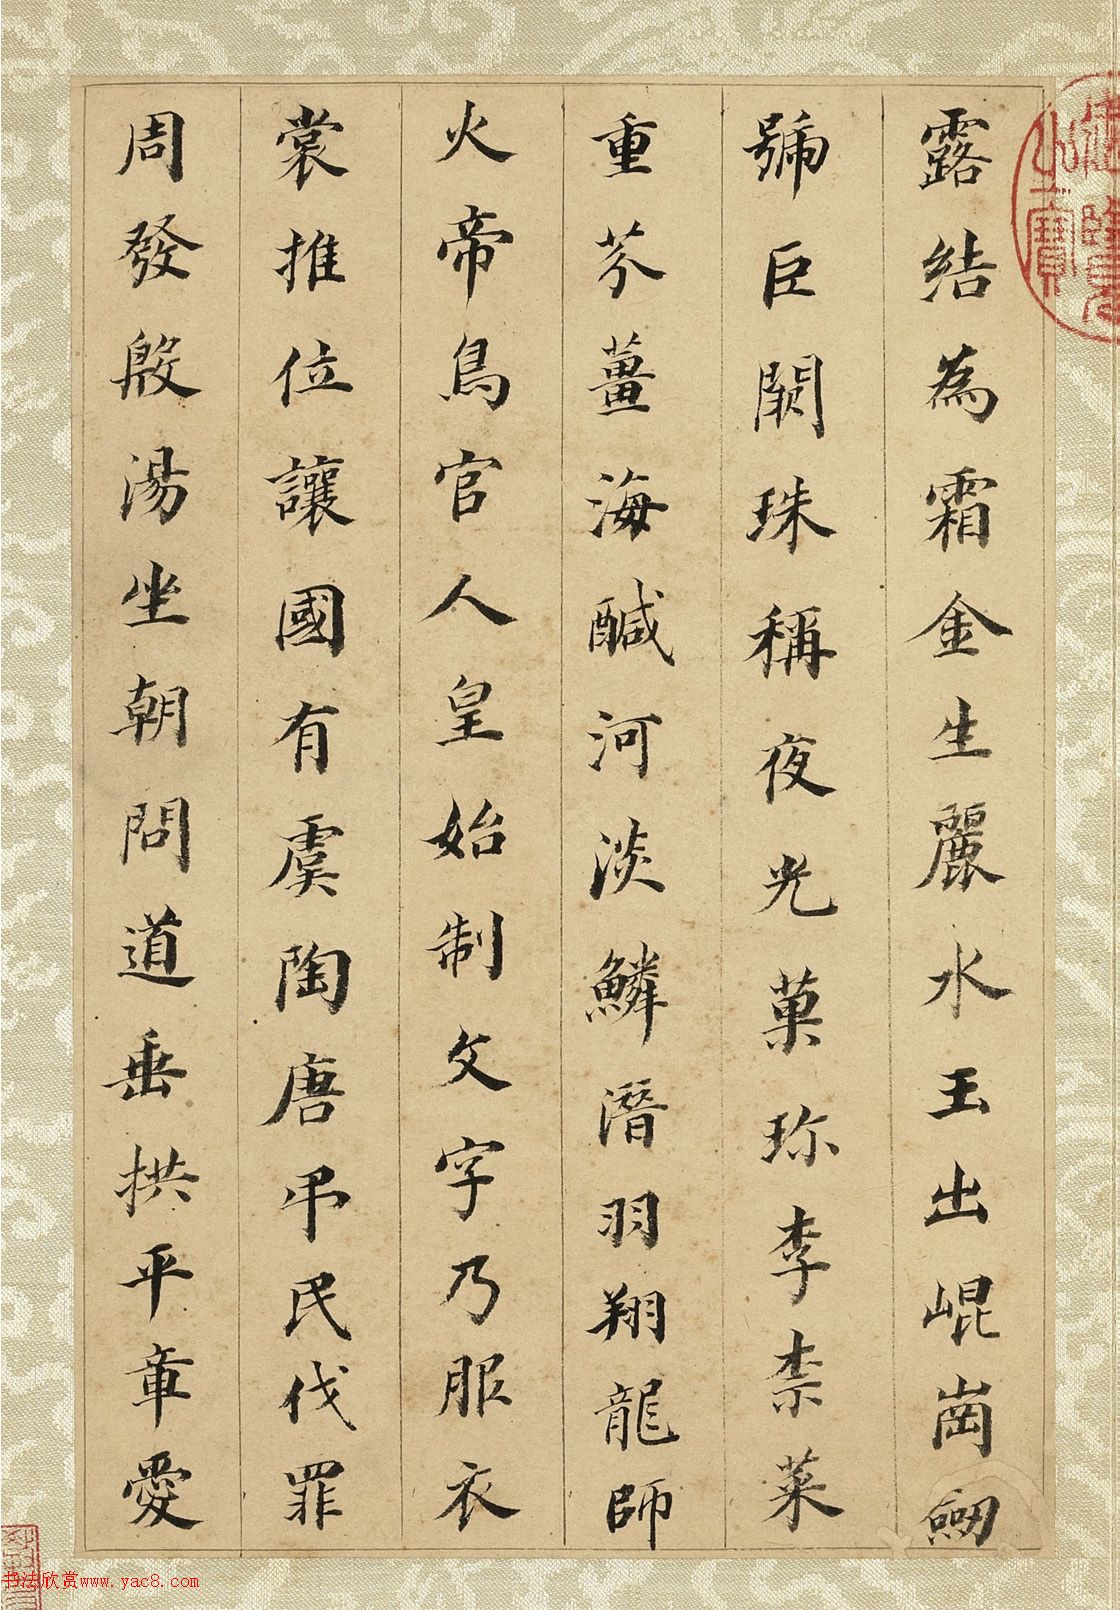 露結為霜金生麗水玉出崐崗劒
號巨闕珠稱夜光菓珎李柰菜
重芥薑海醎河淡鱗潛羽翔龍師
火帝鳥官人皇始制文字乃服衣
裳推位讓國有虞陶唐弔民伐罪
周發殷湯坐朝問道垂拱平章愛
书法欣赏www.yac8.com